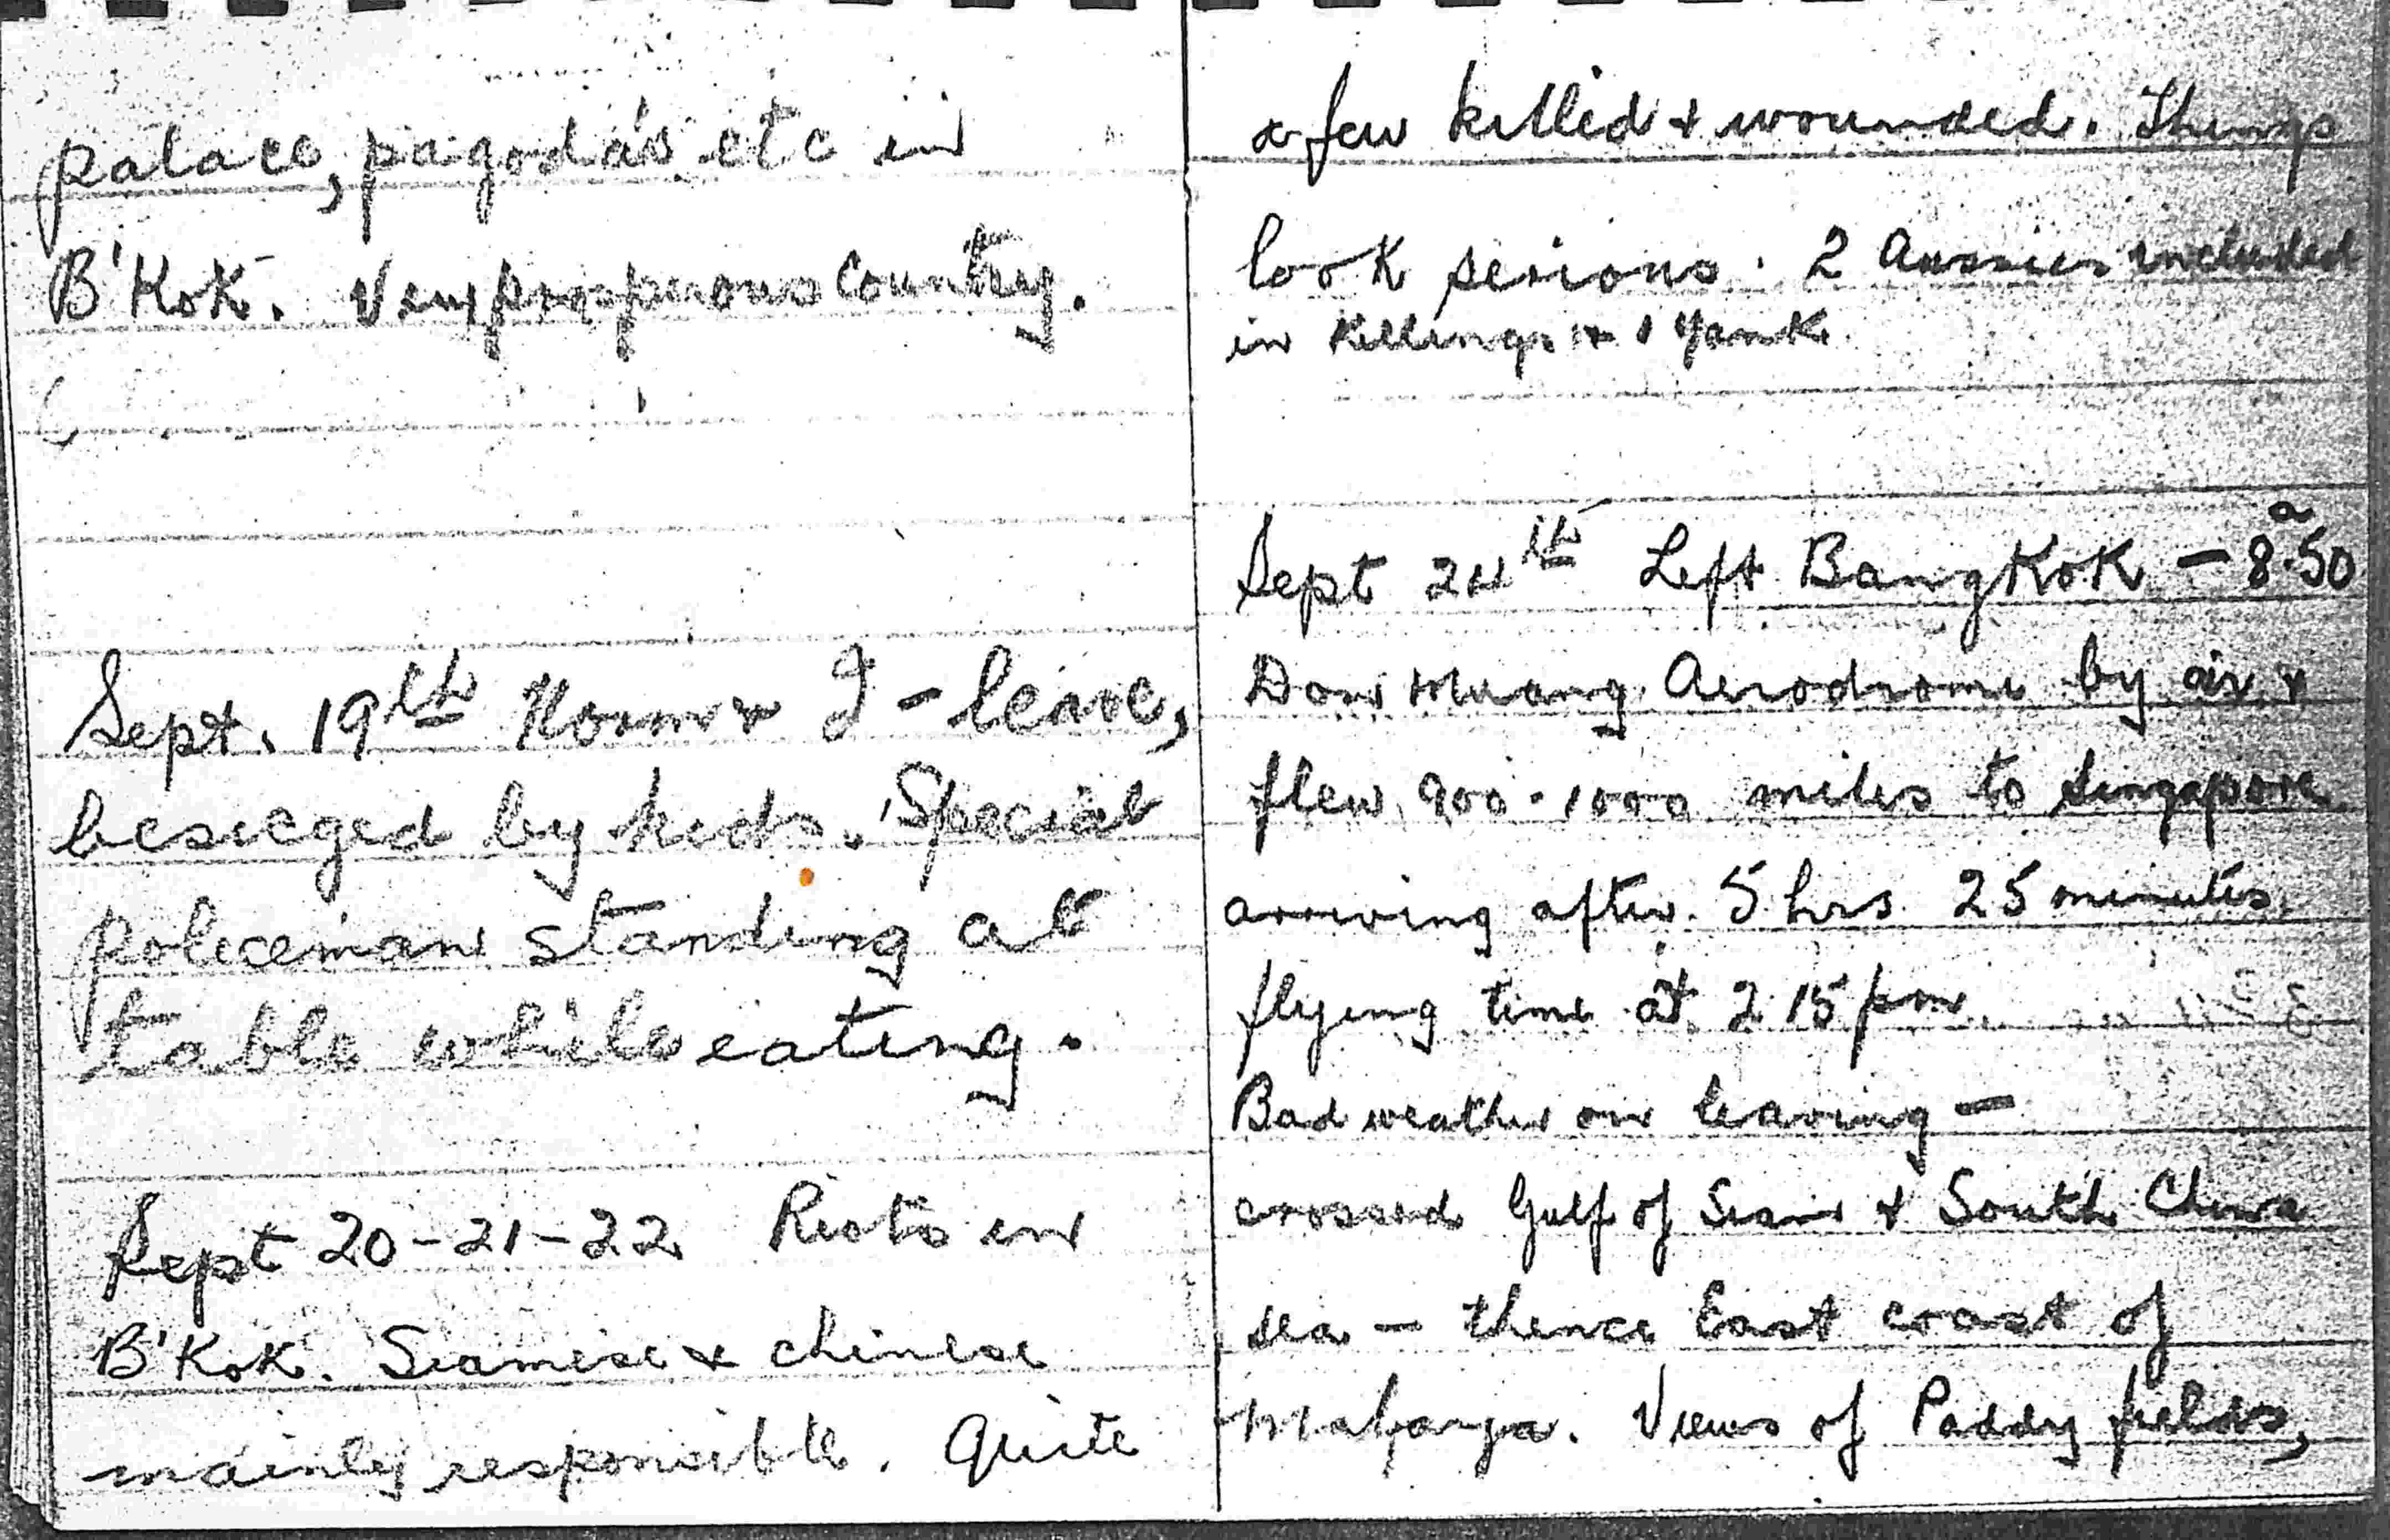 palace, pagoda's etc in
B'Kok. Very prosperous Country.
Sept. 19th Norm & I - leave,
besieged by kids. Special
policeman standing at
table while eating.
Sept 20-21-22 Riots in
B'Kok. Siamese & chinese
mainly responsible. Quite
a few killed & wounded. Things
look serious. 2 Aussies included
in killings & 1 Yank.
Sept 24th Left BangKok - 8.50 a
Don Muang Aerodrome by air &
flew 900-1000 miles to Singapore
arriving after 5 hrs 25 minutes
flying time at 2 15 pm
Bad weather on leaving -
crossed Gulf of Siam & South China
sea - thence East coast of
Malaya. Views of Paddy fields,